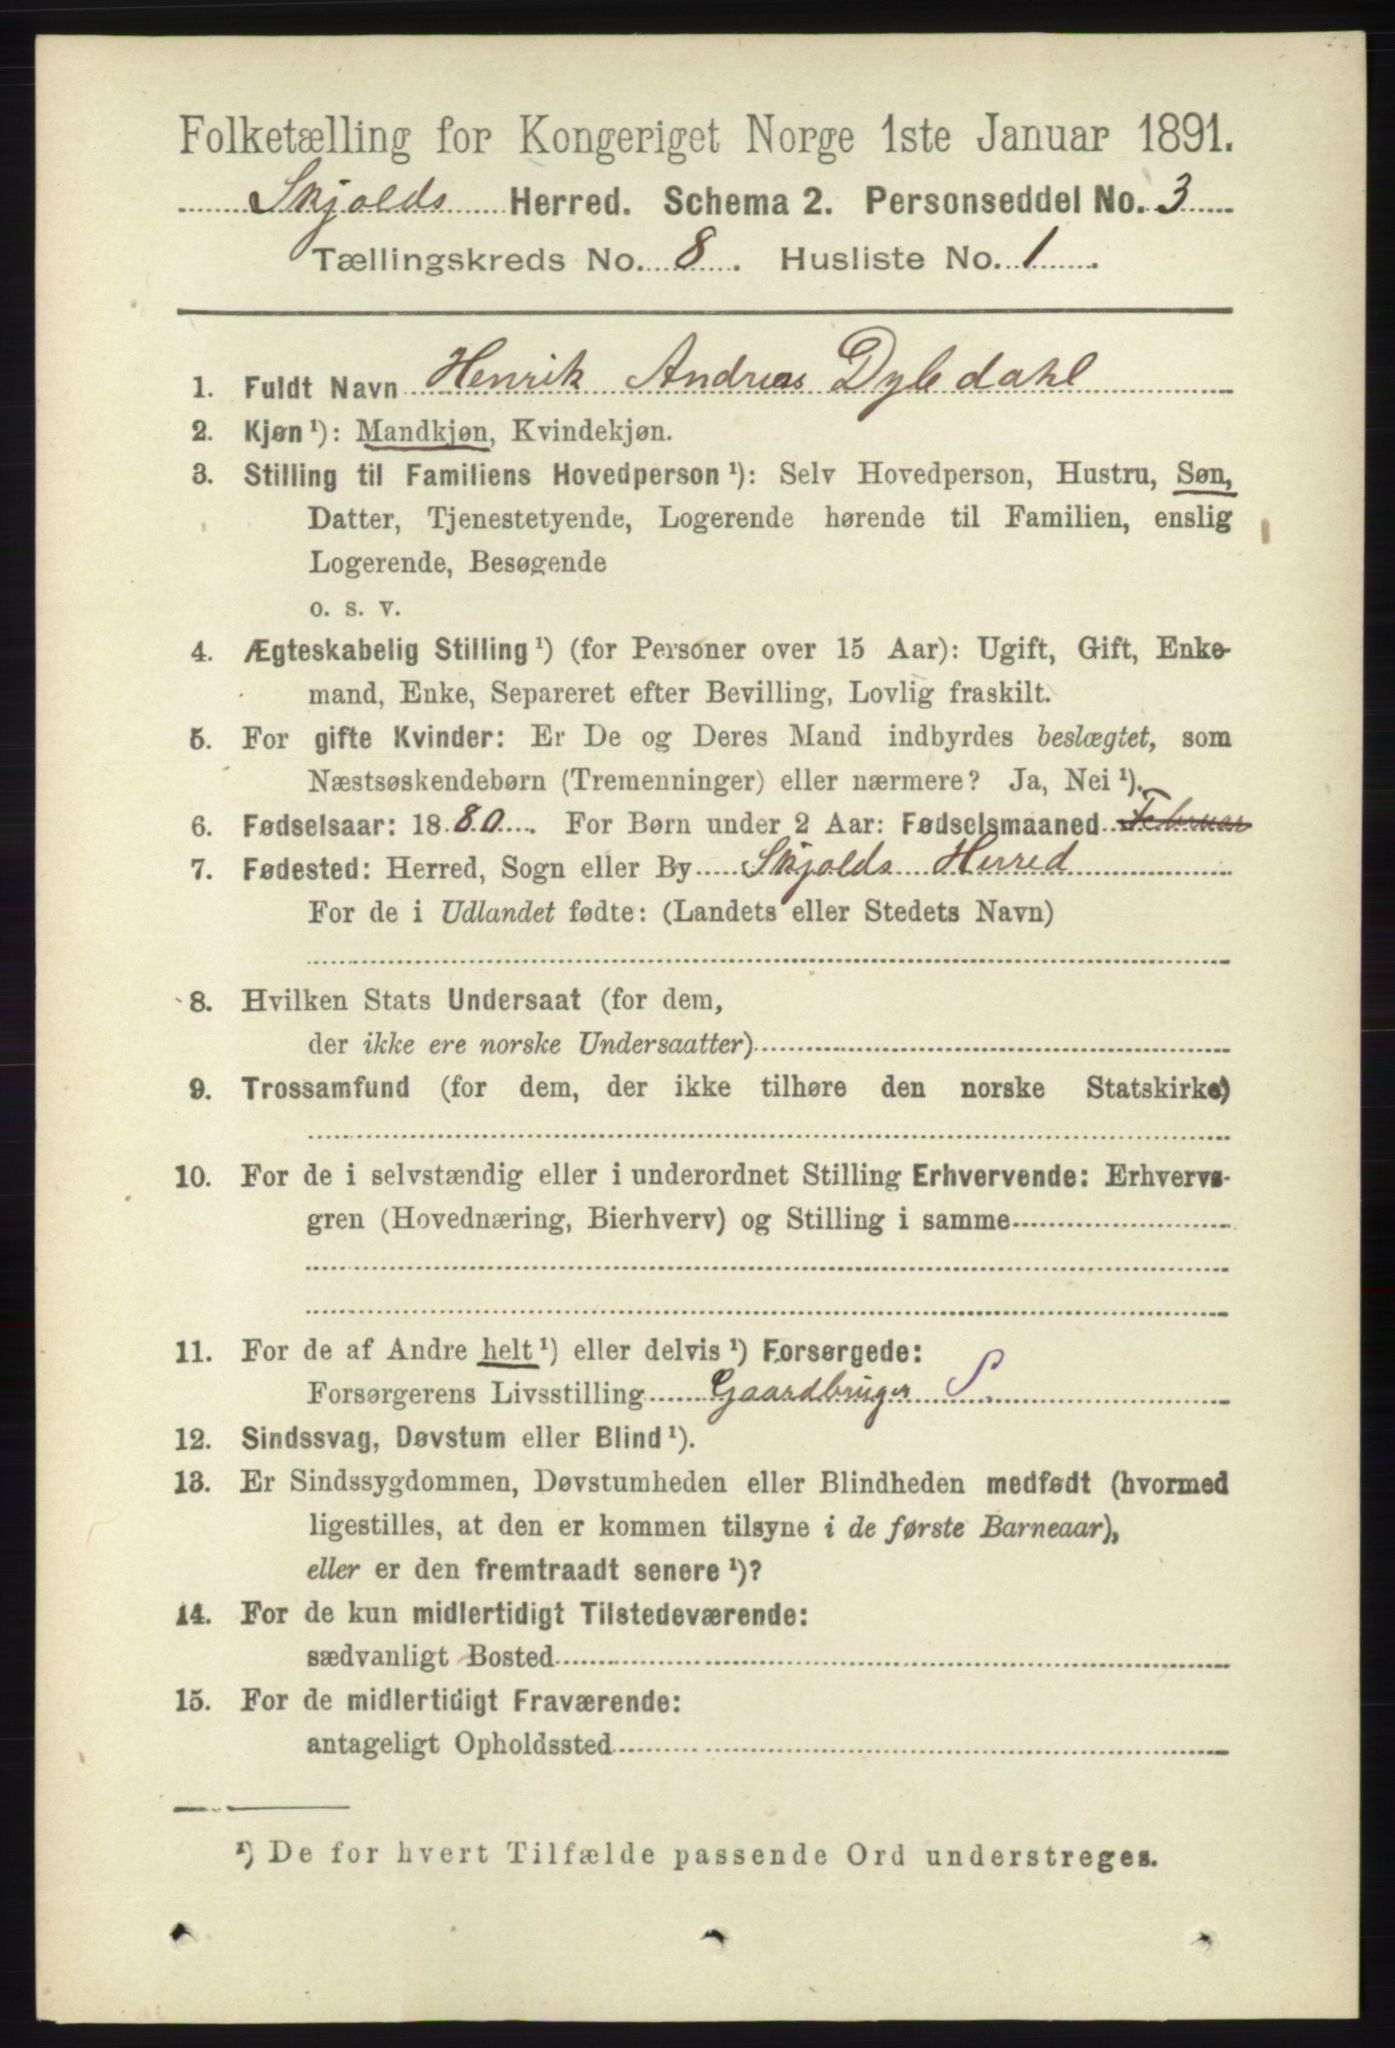 Folketælling for Kongeriget Norge 1ste Januar 1891.
Skjolds Herred. Schema 2. Personseddel No. 3
Tællingskreds No. 8. Husliste No. 1
1. Fuldt Navn Henrik Andreas Dybdahl
2. Kjøn ¹): Mandkjøn, Kvindekjøn.
3. Stilling til Familiens Hovedperson ¹): Selv Hovedperson, Hustru, Søn,
Datter, Tjenestetyende, Logerende hørende til Familien, enslig
Logerende, Besøgende
o. s. v.
4. Ægteskabelig Stilling ¹) (for Personer over 15 Aar): Ugift, Gift, Enke-
mand, Enke, Separeret efter Bevilling, Lovlig fraskilt.
5. For gifte Kvinder: Er De og Deres Mand indbyrdes beslægtet, som
Næstsøskendebørn (Tremenninger) eller nærmere? Ja, Nei ¹).
6. Fødselsaar: 1880. For Børn under 2 Aar: Fødselsmaaned Februar
7. Fødested: Herred, Sogn eller By Skjolds Herred
For de i Udlandet fødte: (Landets eller Stedets Navn)
8. Hvilken Stats Undersaat (for dem,
der ikke ere norske Undersaatter)
9. Trossamfund (for dem, der ikke tilhøre den norske Statskirke)
10. For de i selvstændig eller i underordnet Stilling Erhvervende: Erhvervs-
gren (Hovednæring, Bierhverv) og Stilling i samme
11. For de af Andre helt ¹) eller delvis ¹) Forsørgede:
Forsørgerens Livsstilling Gaardbruger S.
12. Sindssvag, Døvstum eller Blind ¹).
13. Er Sindssygdommen, Døvstumheden eller Blindheden medfødt (hvormed
ligestilles, at den er kommen tilsyne i de første Barneaar),
eller er den fremtraadt senere ¹)?
14. For de kun midlertidigt Tilstedeværende:
sædvanligt Bosted
15. For de midlertidigt Fraværende:
antageligt Opholdssted
¹) De for hvert Tilfælde passende Ord understreges.